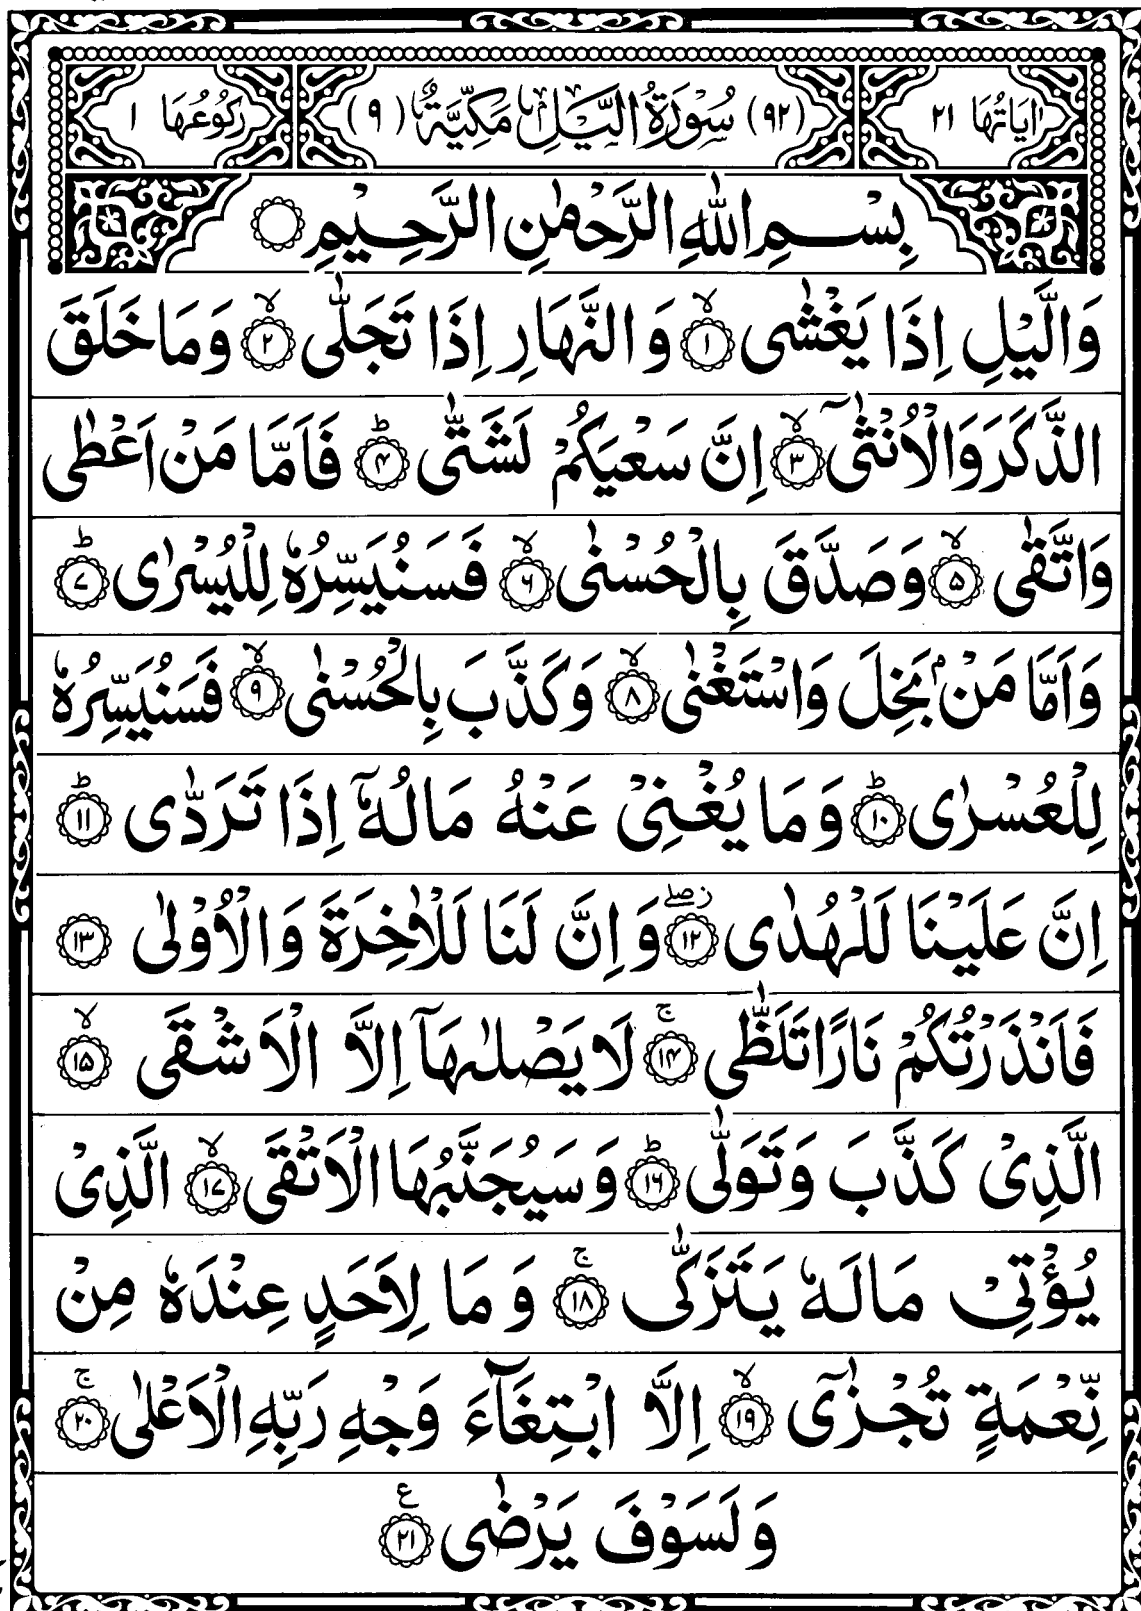 اٰيَاتُهَا ٢١ (٩٢) سُوْرَةُ الَّيْلِ مَكِّيَّةٌ (٩) رُكُوْعُهَا ١
بِسْمِ اللّٰهِ الرَّحْمٰنِ الرَّحِيْمِ
وَالَّيْلِ اِذَا يَغْشٰى ۙ﴿۱﴾ وَالنَّهَارِ اِذَا تَجَلّٰى ۙ﴿۲﴾ وَمَا خَلَقَ
الذَّكَرَ وَالْاُنْثٰىٓ ۙ﴿۳﴾ اِنَّ سَعْيَكُمْ لَشَتّٰى ؕ﴿۴﴾ فَاَمَّا مَنْ اَعْطٰى
وَاتَّقٰى ۙ﴿۵﴾ وَصَدَّقَ بِالْحُسْنٰى ۙ﴿۶﴾ فَسَنُيَسِّرُهٗ لِلْيُسْرٰى ؕ﴿۷﴾
وَاَمَّا مَنْۢ بَخِلَ وَاسْتَغْنٰى ۙ﴿۸﴾ وَكَذَّبَ بِالْحُسْنٰى ۙ﴿۹﴾ فَسَنُيَسِّرُهٗ
لِلْعُسْرٰى ؕ﴿۱۰﴾ وَمَا يُغْنِىْ عَنْهُ مَالُهٗٓ اِذَا تَرَدّٰى ؕ﴿۱۱﴾
اِنَّ عَلَيْنَا لَلْهُدٰى ۖز﴿۱۲﴾ وَاِنَّ لَنَا لَلْاٰخِرَةَ وَالْاُوْلٰى ﴿۱۳﴾
فَاَنْذَرْتُكُمْ نَارًا تَلَظّٰى ۚ﴿۱۴﴾ لَا يَصْلٰىهَاۤ اِلَّا الْاَشْقَى ۙ﴿۱۵﴾
الَّذِىْ كَذَّبَ وَتَوَلّٰى ؕ﴿۱۶﴾ وَسَيُجَنَّبُهَا الْاَتْقَى ۙ﴿۱۷﴾ الَّذِىْ
يُؤْتِىْ مَالَهٗ يَتَزَكّٰى ۚ﴿۱۸﴾ وَمَا لِاَحَدٍ عِنْدَهٗ مِنْ
نِّعْمَةٍ تُجْزٰىٓ ۙ﴿۱۹﴾ اِلَّا ابْتِغَآءَ وَجْهِ رَبِّهِ الْاَعْلٰى ۚ﴿۲۰﴾
وَلَسَوْفَ يَرْضٰى ﴿۲۱﴾ ع